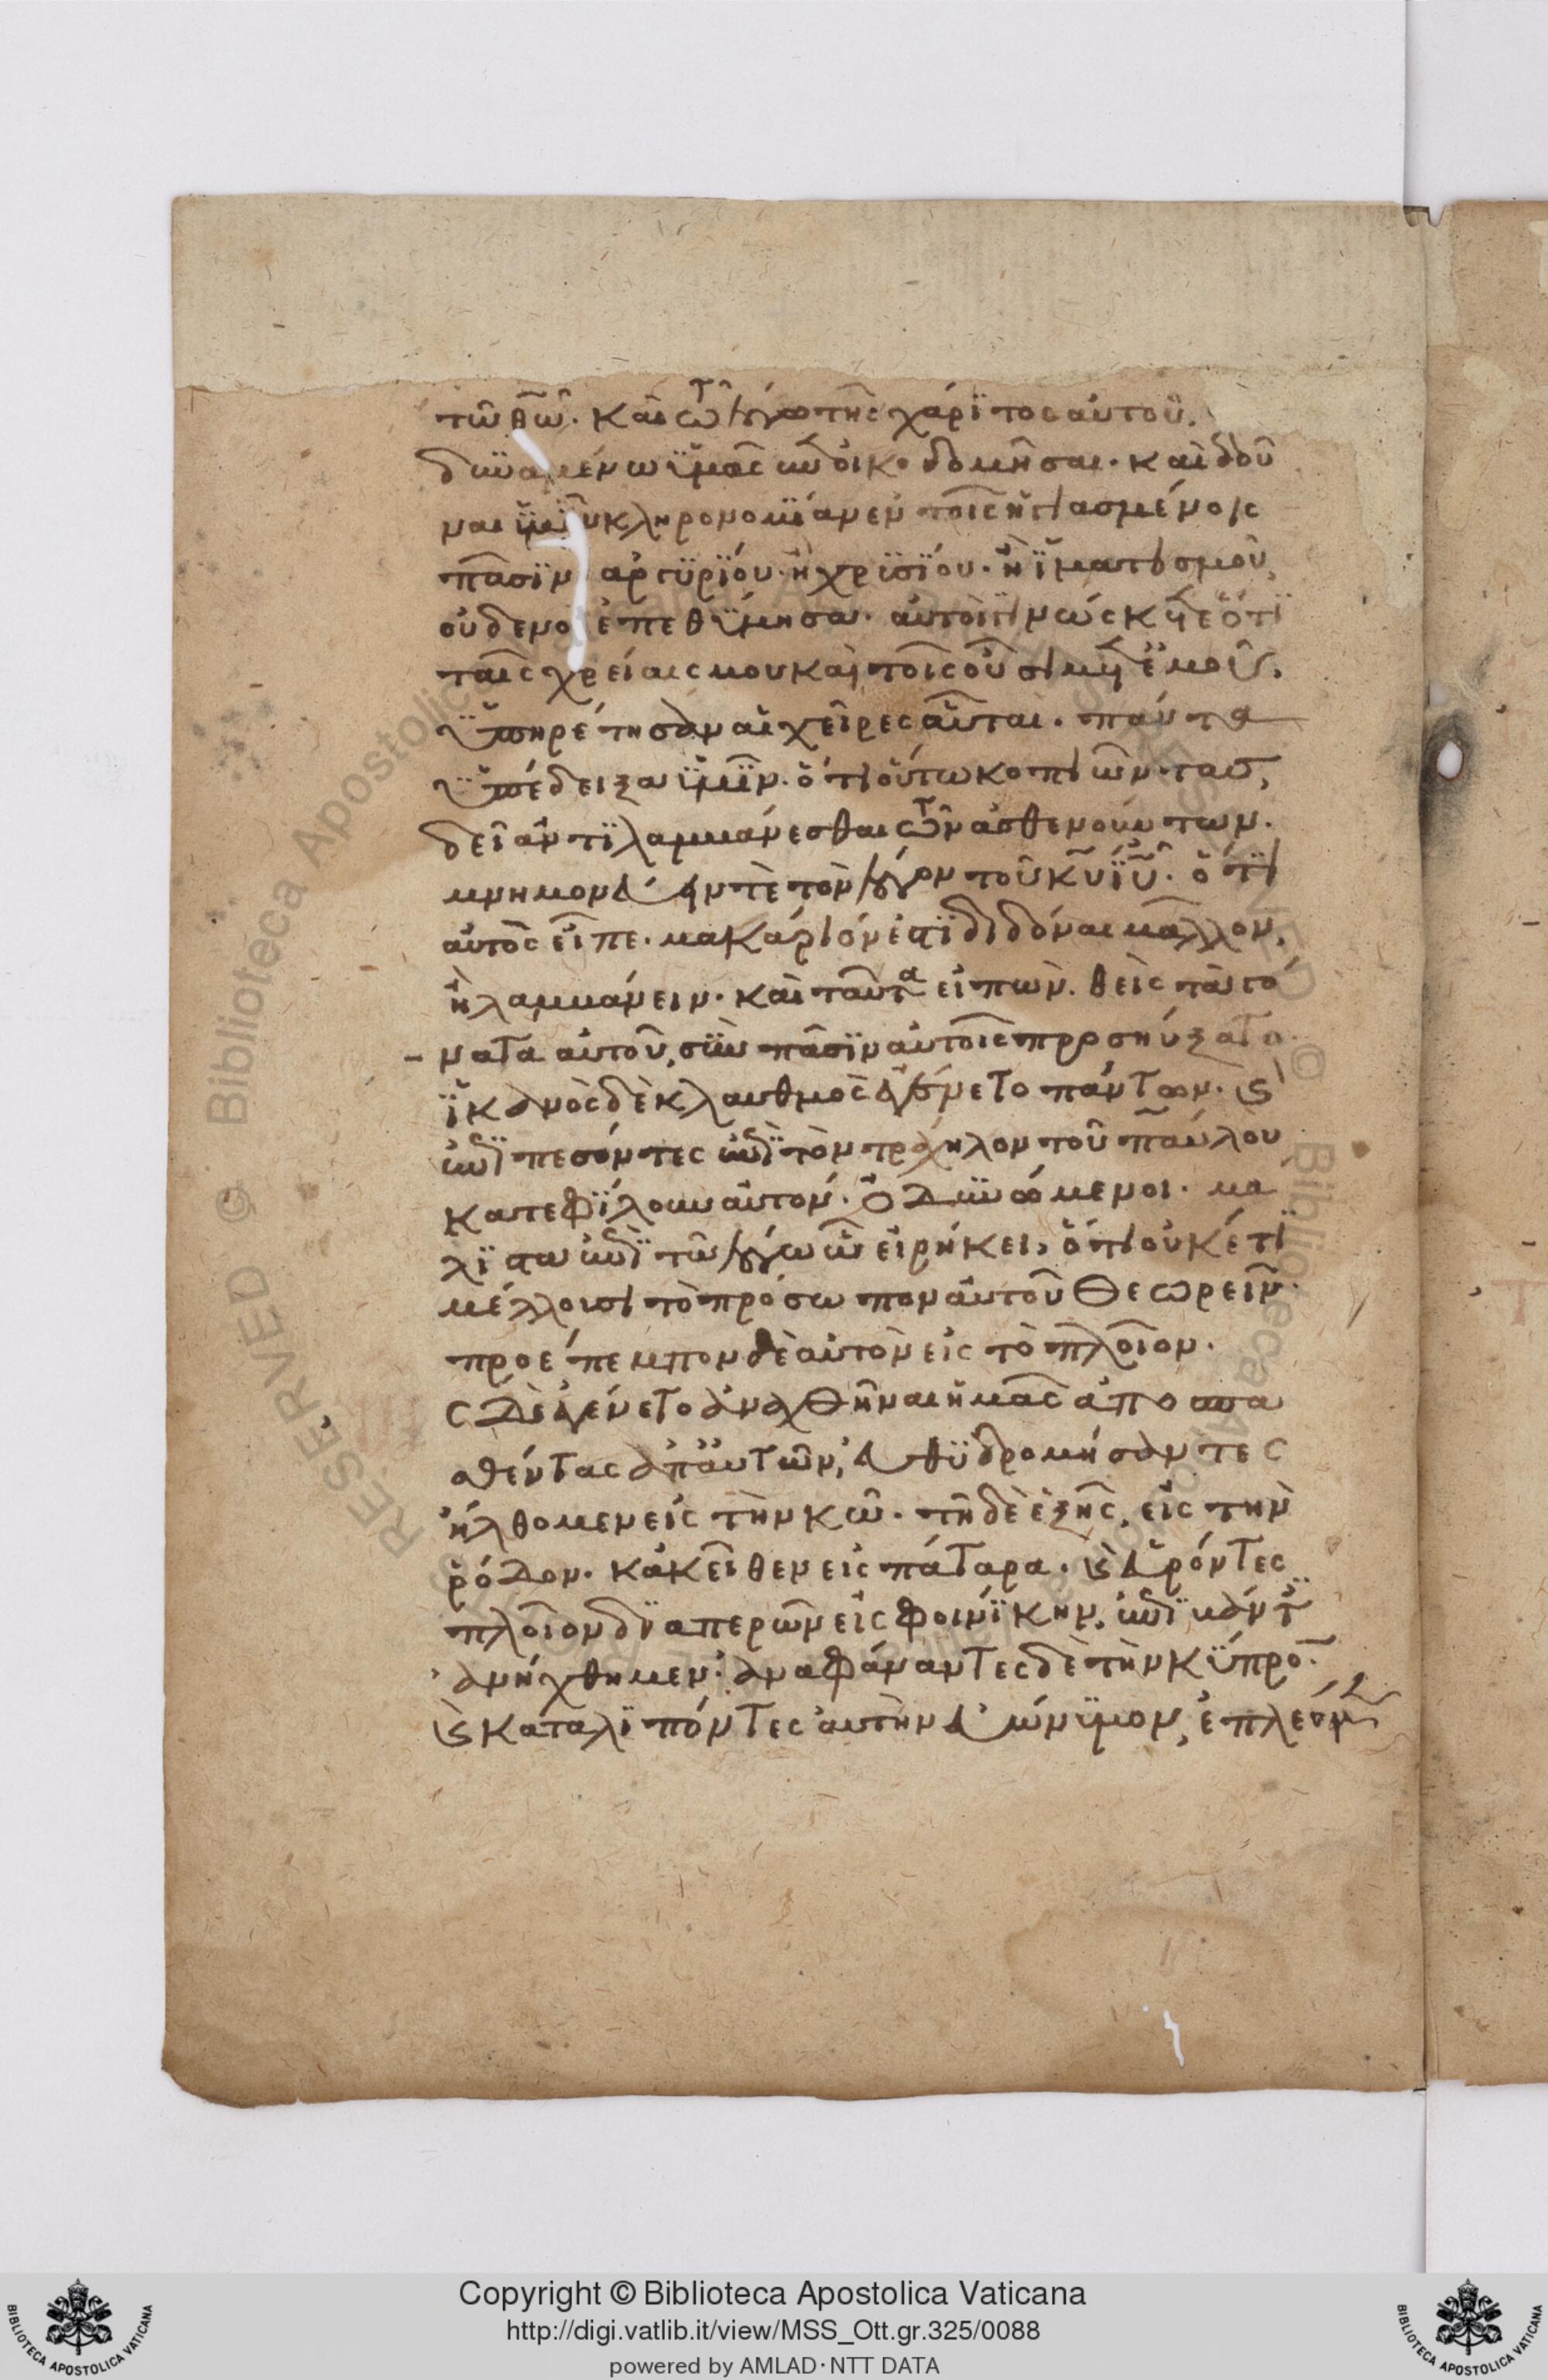 τῶ θ̅ω̅. καὶ τῶ λόγω τῆς χάριτος αὐτοῦ,
δυναμένω ὑμᾶς ἐποικοδομῆσαι. καὶ δοῦ
ναι ὑμῖν κληρονομίαν ἐν τοῖς ἡγιασμένοις
πᾶσιν ἀργυρίου. ἢ χρυσίου. ἢ ἱματισμοῦ,
οὐδενὸς ἐπεθύμησα. αὐτοὶ γινώσκετε ὅτι
ταῖς χρείαις μου καὶ τοῖς οὖσι μετ ἐμοῦ,
ὑπηρέτησαν αἱ χεῖρες αὗται. πάντα
ὑπέδειξα ὑμῖν. ὅτι οὕτω κοπιῶντας,
δεῖ ἀντιλαμβάνεσθαι τῶν ἀσθενούντων.
μνημονεύειν τὲ τὸν λόγον τοῦ κ̅υ̅ ι̅υ̅. ὅτι
αὐτὸς εἶπε. μακάριόν ἐστι διδόναι μᾶλλον,
ἢ λαμβάνειν. καὶ ταῦτα εἰπὼν. θεὶς τὰ γό
νατα αὐτοῦ, σὺν πᾶσιν αὐτοῖς προσηύξατο.
ἱκανὸς δὲ κλαυθμὸς ἐγένετο πάντων. κ
ἐπιπεσόντες ἐπὶ τὸν τράχηλον τοῦ παύλου
κατεφίλουν αὐτόν. ὀδυνώμενοι. μά
λιστα ἐπὶ τῶ λόγω ὧ εἰρήκει, ὅτι οὐκέτι
μέλλουσι τὸ πρόσωπον αὐτοῦ θεωρεῖν.
προέπεμπον δὲ αὐτὸν εἰς τὸ πλοῖον.
ς δὲ ἐγένετο ἀναχθῆναι ἡμᾶς ἀποσπα
σθέντας ἀπ αὐτῶν, εὐθυδρομήσαντες
ἤλθομεν εἰς τὴν κῶ. τῆ δὲ ἑξῆς, εἰς τὴν
ῥόδον. κἀκεῖθεν εἰς πάταρα. κ εὑρόντες
πλοῖον διαπερῶν εἰς φοινίκην, ἐπιβάντ
ἀνήχθημεν. ἀναφάναντες δὲ τὴν κύπρο̅.
κ καταλιπόντες αὐτὴν εὐώνυμον, ἐπλέομ
Copyright © Biblioteca Apostolica Vaticana
http://digi.vatlib.it/view/MSS_Ott.gr.325/0088
powered by AMLAD·NTT DATA